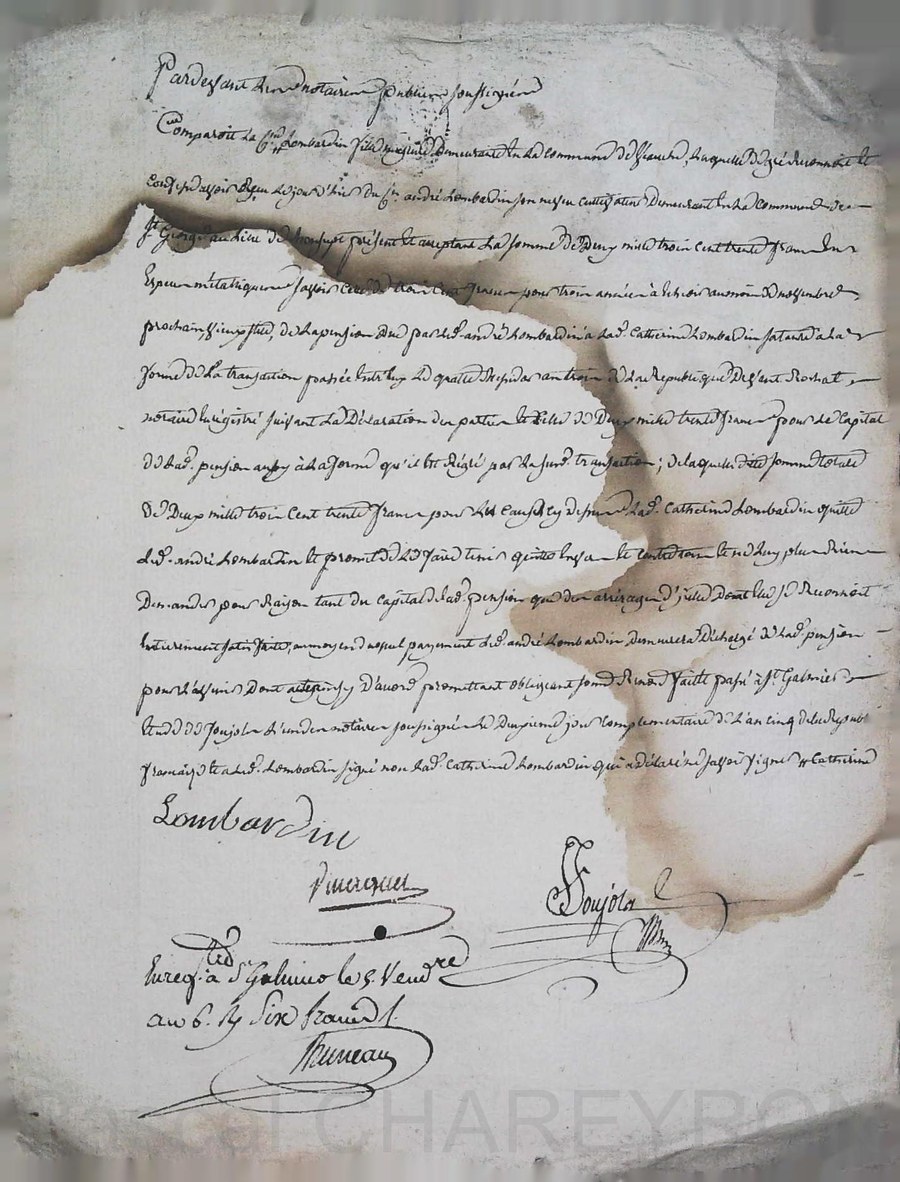 Pardevant Les notaires publics soussignés
Comparoit La C.ne Lombardin fille majeure demeurante En La commune de laquelle de gré Reconnoit Et
Confesse avoir Reçu Cejourd'hui du C.en andré Lombardin son neveu cultivateur Demeurant En La Commune de
St George au Lieu de présent Et aceptant La somme de Deux mille trois cent trente francs En
Especes métalliques sçavoir Celle de trois Cent francs pour trois années à Echoir au mois de novembre
prochain, vieux stile, de La pension due par Led. andré Lombardin a Lad. Catherine Lombardin sa tante a La
forme de La transaction passée Entr'Eux Le quatre an trois de La Republique Devant Rochat
notaire Enregistré suivant La Déclaration des parties Et Celle de Deux mille trente francs pour Le Capital
de Lad. pension aussy à La forme qu'il Est Réglé par La susd. transaction ; de laquelle dite somme totale
de Deux mille trois Cent trente francs pour Les Causes cy dessus Lad. Catherine Lombardin quitte
Led. andré Lombardin Et promet de Le faire tenir quitte Envers Et contre tous Et ne Luy plus Rien
Demander pour Raison tant du Capital de lad. pension que des arrérages d'icelle Dont Elle se Reconnoit
Entierement satisfaite, au moyen duquel payement Led. andré Lombardin Demeurera déchargé de Lad. pension
pour L'avenir Dont ainsy D'acord promettant obligeant soumettant Renonçant fait Et passé à St. Galmier
Etude de Joujola L'un des notaires soussignés Le Deuxieme jour complementaire de L'an cinq de la Republ.
française Et a Led. Lombardin signé non Lad. Catherine Lombardin qui a déclaré ne sçavoir signer Catherine
Lombardin
Joujola
Enreg. à St Galmier le 5. Vend.re
an 6. R Six francs
Bruneau
Pascal CHAREYRON